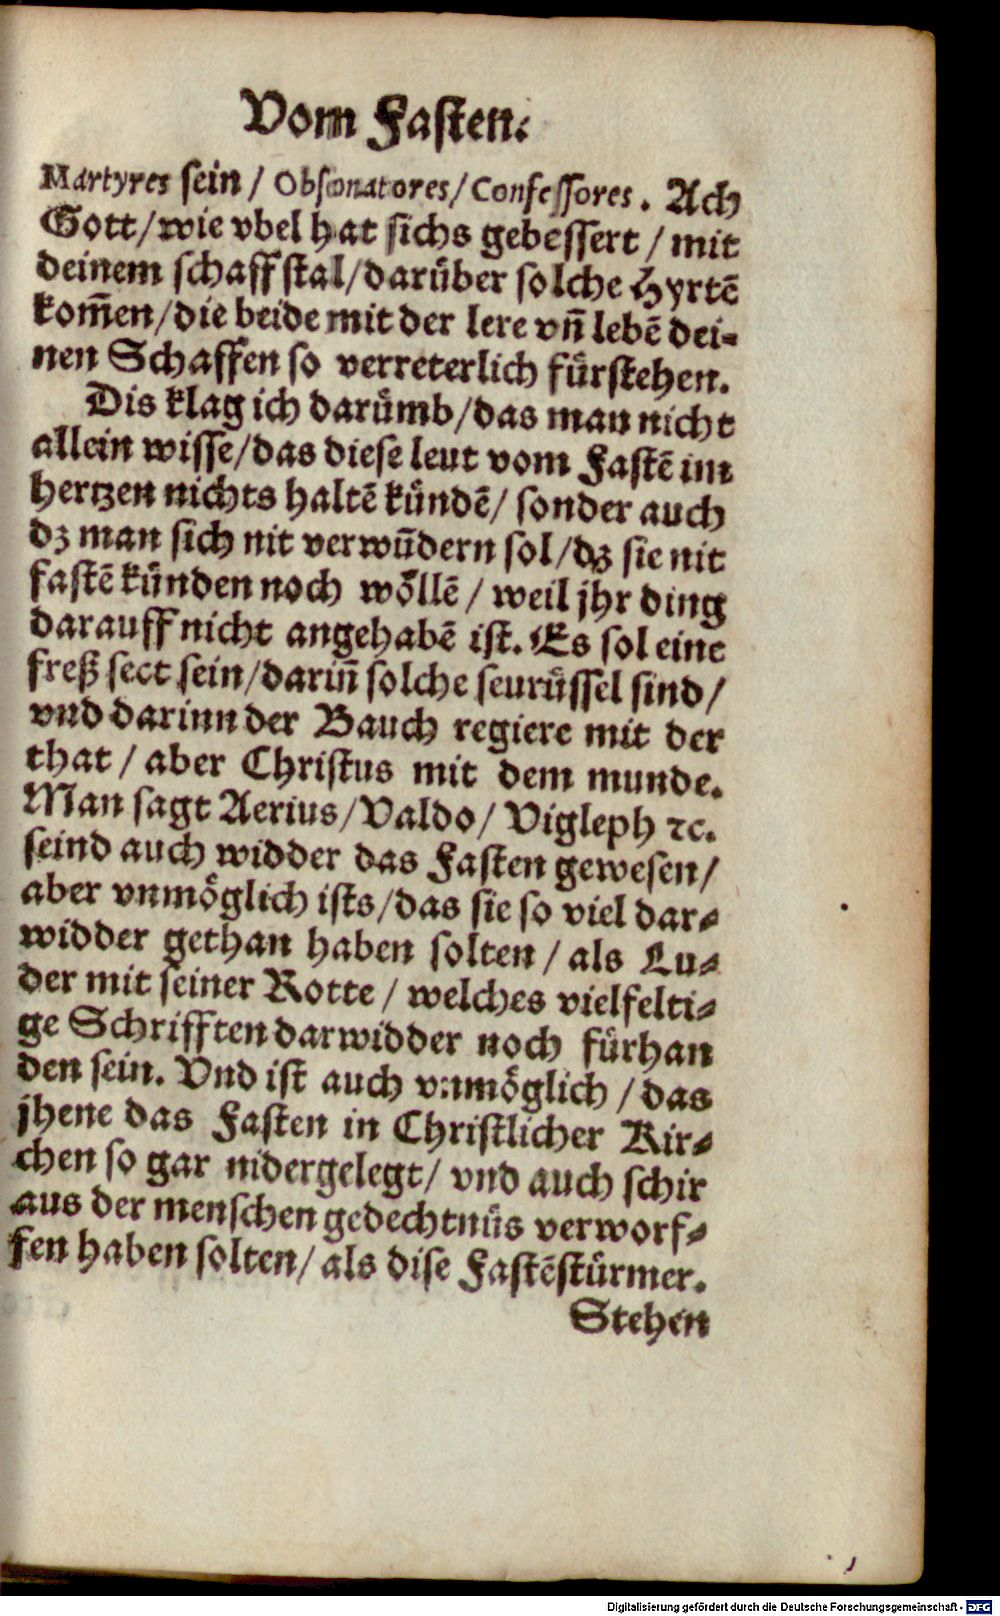 Vom Fasten.
Martyres sein / Obsonatores / Confessores. Ach
Gott / wie vbel hat sichs gebessert / mit
deinem schaffstal / darüber solche Hyrtē
kom̄en / die beide mit der lere vn̄ lebē dei-
nen Schaffen so verreterlich fürstehen.
Dis klag ich darümb / das man nicht
allein wisse / das diese leut vom Fastē im
hertzen nichts haltē kündē / sonder auch
dz man sich nit verwūdern sol / dz sie nit
fastē künden noch wöllē / weil jhr ding
darauff nicht angehabē ist. Es sol eine
freß sect sein / darin̄ solche seurüssel sind /
vnd darinn der Bauch regiere mit der
that / aber Christus mit dem munde.
Man sagt Aerius / Valdo / Vigleph ꝛc.
seind auch widder das Fasten gewesen /
aber vnmöglich ists / das sie so viel dar-
widder gethan haben solten / als Lu-
der mit seiner Rotte / welches vielfelti-
ge Schrifften darwidder noch fürhan
den sein. Vnd ist auch vnmöglich / das
jhene das Fasten in Christlicher Kir-
chen so gar nidergelegt / vnd auch schir
aus der menschen gedechtnüs verworf-
fen haben solten / als dise Fastēstürmer.
Stehen
Digitalisierung gefördert durch die Deutsche Forschungsgemeinschaft - DFG